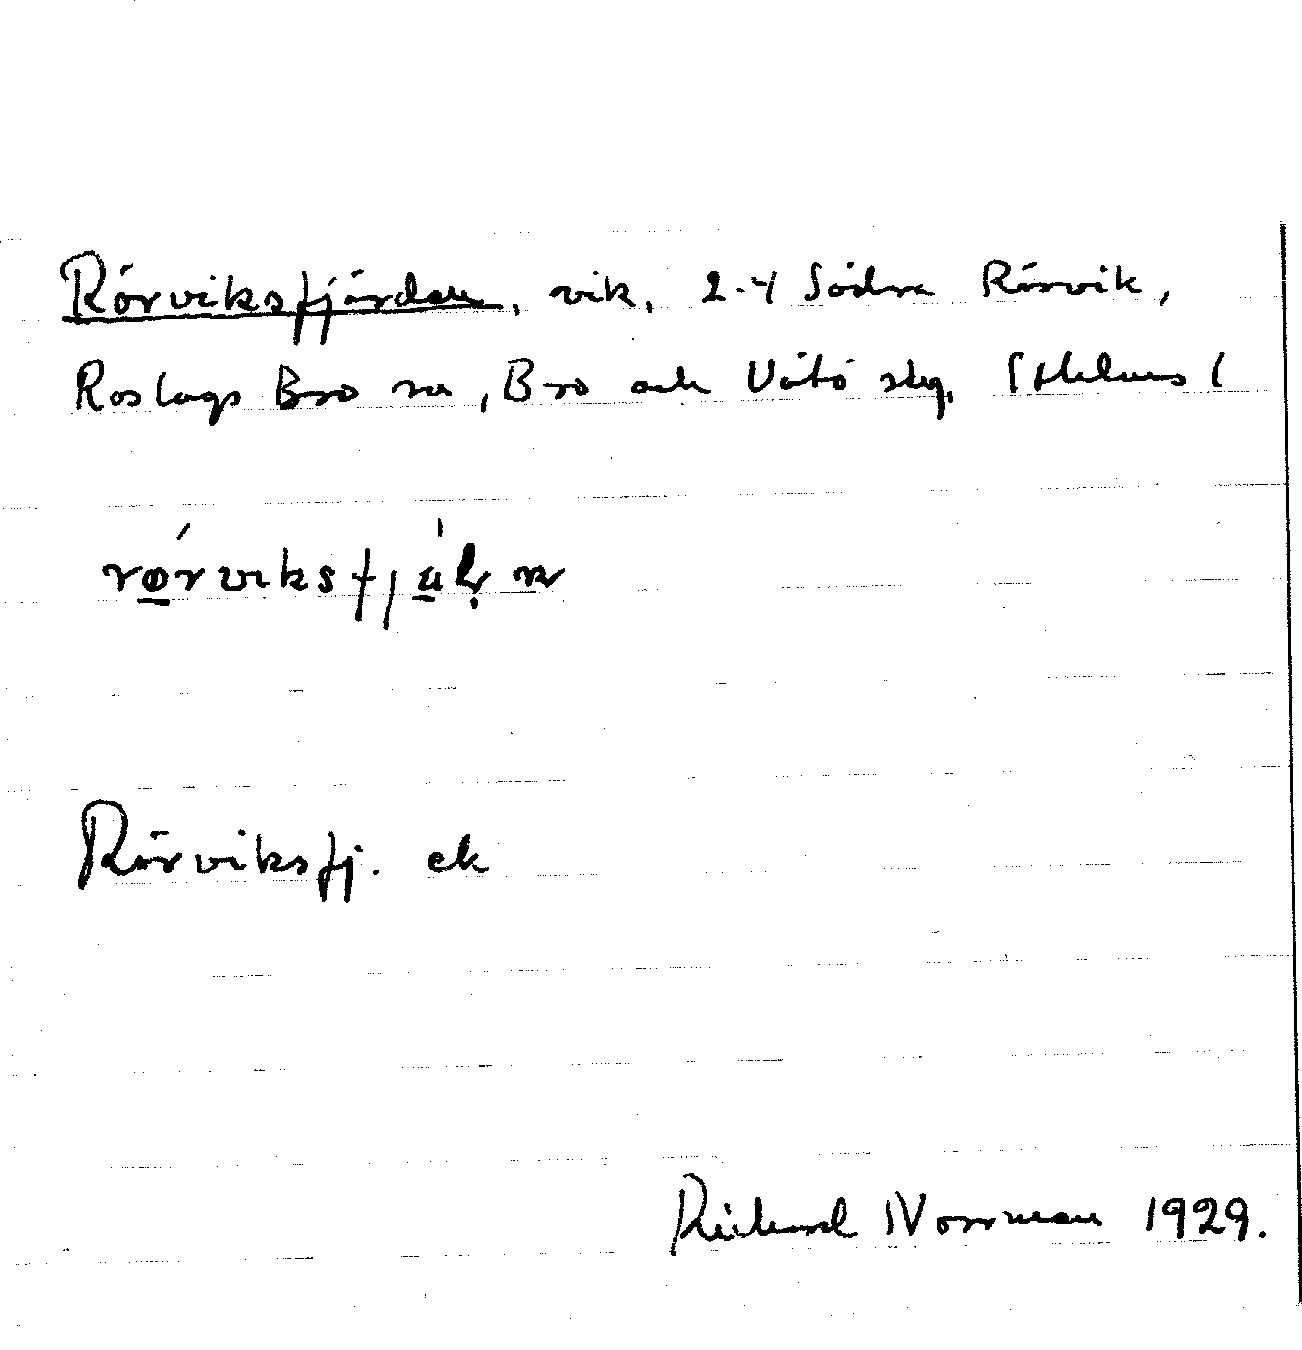 Rörviksfjärden, vik, 2-4 Södra Rörvik,
Roslags Bro sn, Bro och Vätö skg, Sthlms l
Rörviksfj. ek
Rickard Norrman 1929.